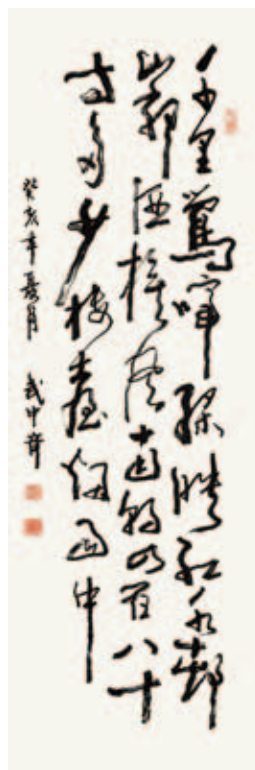 千里鶯啼綠映紅水邨
山郭酒旗風南朝四百八十
寺多少樓臺烟雨中
癸亥年月 武中奇